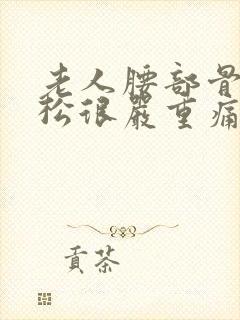 老人腰部骨
松很严重痛
贡茶